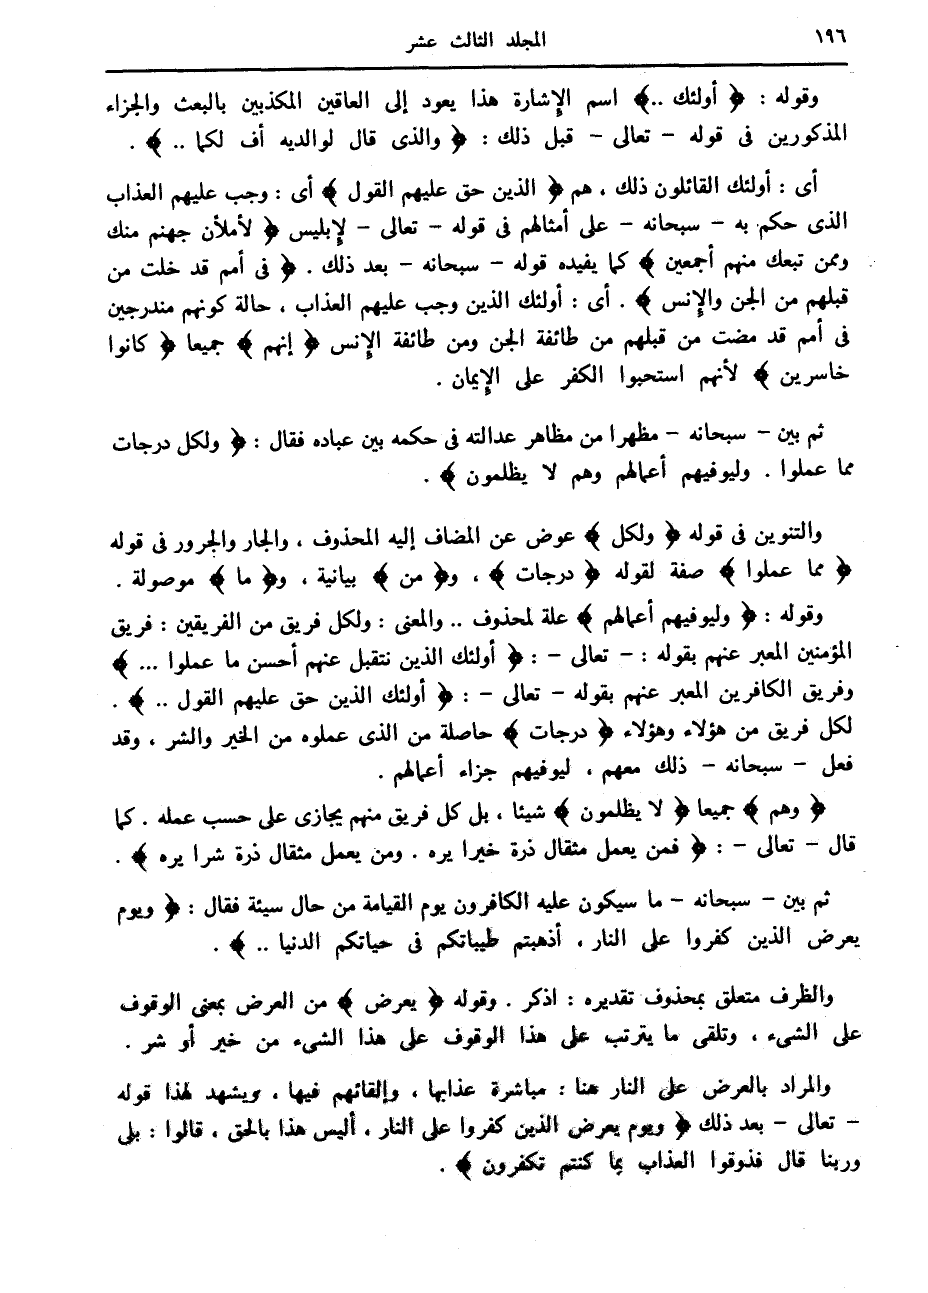 ١٩٦
المجلد الثالث عشر
وقوله : ﴿ أولئك ..﴾ اسم الإشارة هذا يعود إلى العاقين المكذبين بالبعث والجزاء
المذكورين فى قوله – تعالى – قبل ذلك : ﴿ والذى قال لوالديه أف لكما .. ﴾ .
أى : أولئك القائلون ذلك ، هم ﴿ الذين حق عليهم القول ﴾ أى : وجب عليهم العذاب
الذى حكم به – سبحانه – على أمثالهم فى قوله – تعالى – لإبليس ﴿ لأملأن جهنم منك
وممن تبعك منهم أجمعين ﴾ كما يفيده قوله – سبحانه – بعد ذلك . ﴿ فى أمم قد خلت من
قبلهم من الجن والإنس ﴾ . أى : أولئك الذين وجب عليهم العذاب ، حالة كونهم مندرجين
فى أمم قد مضت من قبلهم من طائفة الجن ومن طائفة الإنس ﴿ إنهم ﴾ جميعا ﴿ كانوا
خاسرين ﴾ لأنهم استحبوا الكفر على الإيمان .
ثم بين – سبحانه – مظهرا من مظاهر عدالته فى حكمه بين عباده فقال : ﴿ ولكل درجات
مما عملوا . وليوفيهم أعمالهم وهم لا يظلمون ﴾ .
والتنوين فى قوله ﴿ ولكل ﴾ عوض عن المضاف إليه المحذوف ، والجار والجرور فى قوله
﴿ مما عملوا ﴾ صفة لقوله ﴿ درجات ﴾ ، و﴿ من ﴾ بيانية ، و﴿ ما ﴾ موصولة .
وقوله : ﴿ وليوفيهم أعمالهم ﴾ علة لمحذوف .. والمعنى : ولكل فريق من الفريقين : فريق
المؤمنين المعبر عنهم بقوله : – تعالى – : ﴿ أولئك الذين نتقبل عنهم أحسن ما عملوا ... ﴾
وفريق الكافرين المعبر عنهم بقوله – تعالى – : ﴿ أولئك الذين حق عليهم القول .. ﴾ .
لكل فريق من هؤلاء وهؤلاء ﴿ درجات ﴾ حاصلة من الذى عملوه من الخير والشر ، وقد
فعل – سبحانه – ذلك معهم ، ليوفيهم جزاء أعمالهم .
﴿ وهم ﴾ جميعا ﴿ لا يظلمون ﴾ شيئا ، بل كل فريق منهم يجازى على حسب عمله . كما
قال – تعالى – : ﴿ فمن يعمل مثقال ذرة خيرا يره . ومن يعمل مثقال ذرة شرا يره ﴾ .
ثم بين – سبحانه – ما سيكون عليه الكافرون يوم القيامة من حال سيئة فقال : ﴿ ويوم
يعرض الذين كفروا على النار ، أذهبتم طيباتكم فى حياتكم الدنيا .. ﴾ .
والظرف متعلق بمحذوف تقديره : اذكر . وقوله ﴿ يعرض ﴾ من العرض بمعنى الوقوف
على الشىء ، وتلقى ما يترتب على هذا الوقوف على هذا الشىء من خير أو شر .
والمراد بالعرض على النار هنا : مباشرة عذابها ، وإلقائهم فيها ، ويشهد لهذا قوله
– تعالى – بعد ذلك ﴿ ويوم يعرض الذين كفروا على النار ، أليس هذا بالحق ، قالوا : بلى
وربنا قال فذوقوا العذاب بما كنتم تكفرون ﴾ .